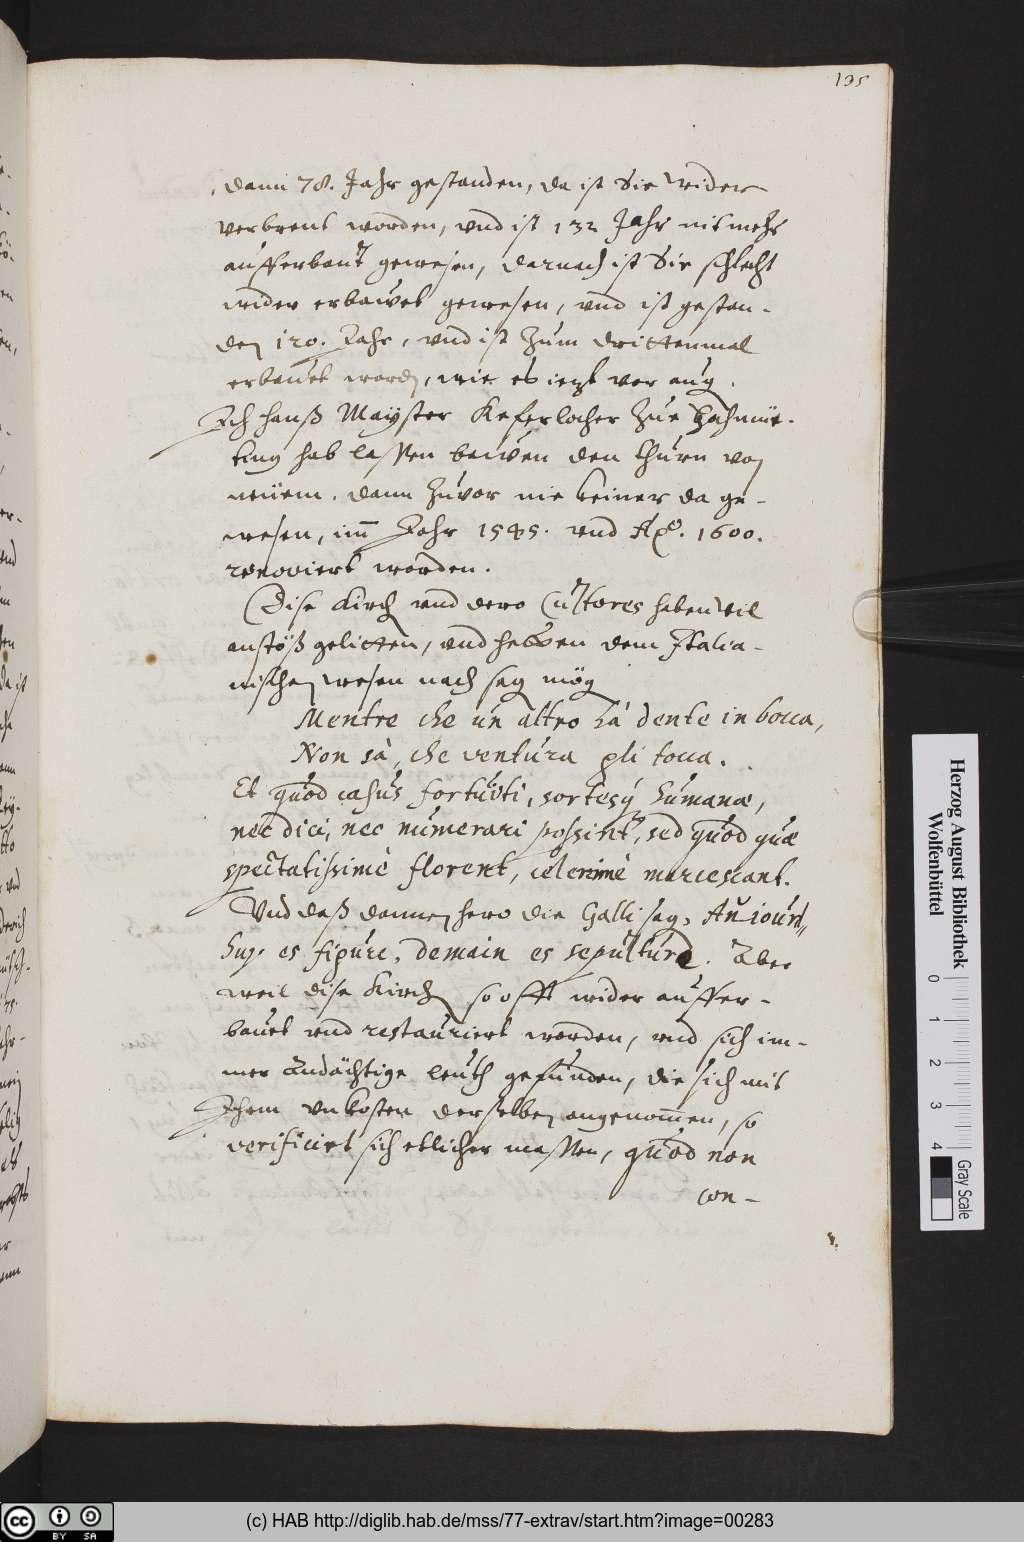 195
dann 78. Jahr gestanden, da ist Sie wider
verbrent worden, vnd ist 132 Jahr nit mehr
aufferbaut gewesen, darnach ist Sie schlecht
wider erbawet gewesen, vnd ist gestan-
den 120. Jahr, vnd ist zum drittenmal
erbauet worden, wie es iezt vor aug.
Ich Hanß Mayster Keferlocher zue
king hab lassen bawen den thurn von
neuem. dann zuvor nie keiner da ge-
wesen, im Jahr 1545. vnd Aō. 1600.
renoviert worden.
Dise Kirch vnd dero Cultores haben vil
anstöß gelitten, vnd hetten dem Italia-
nischen wesen nach sagen mögen
Mentre che un altro hà dente in bocca,
Non sà, che ventura gli tocca.
Et quod casus fortuiti, sortesq humanæ,
nec dici, nec numerari possint, sed quod quæ
spectatissimè florent, celerrimè marcescant.
Vnd daß dannen hero die Galli sagen, Au iourd
huy es figure, demain es sepulture. Aber
weil dise Kirch so offt wider auffer-
bauet vnd restauriert worden, vnd sich im-
mer andächtige leuth gefunden, die sich mit
Jhrem vnkosten derselben angenommen, so
verificiert sich etlicher massen, quod non
con-
Herzog August Bibliothek
Wolfenbüttel
0 1 2 3 4
Gray Scale
(c) HAB http://diglib.hab.de/mss/77-extrav/start.htm?image=00283
cc BY SA